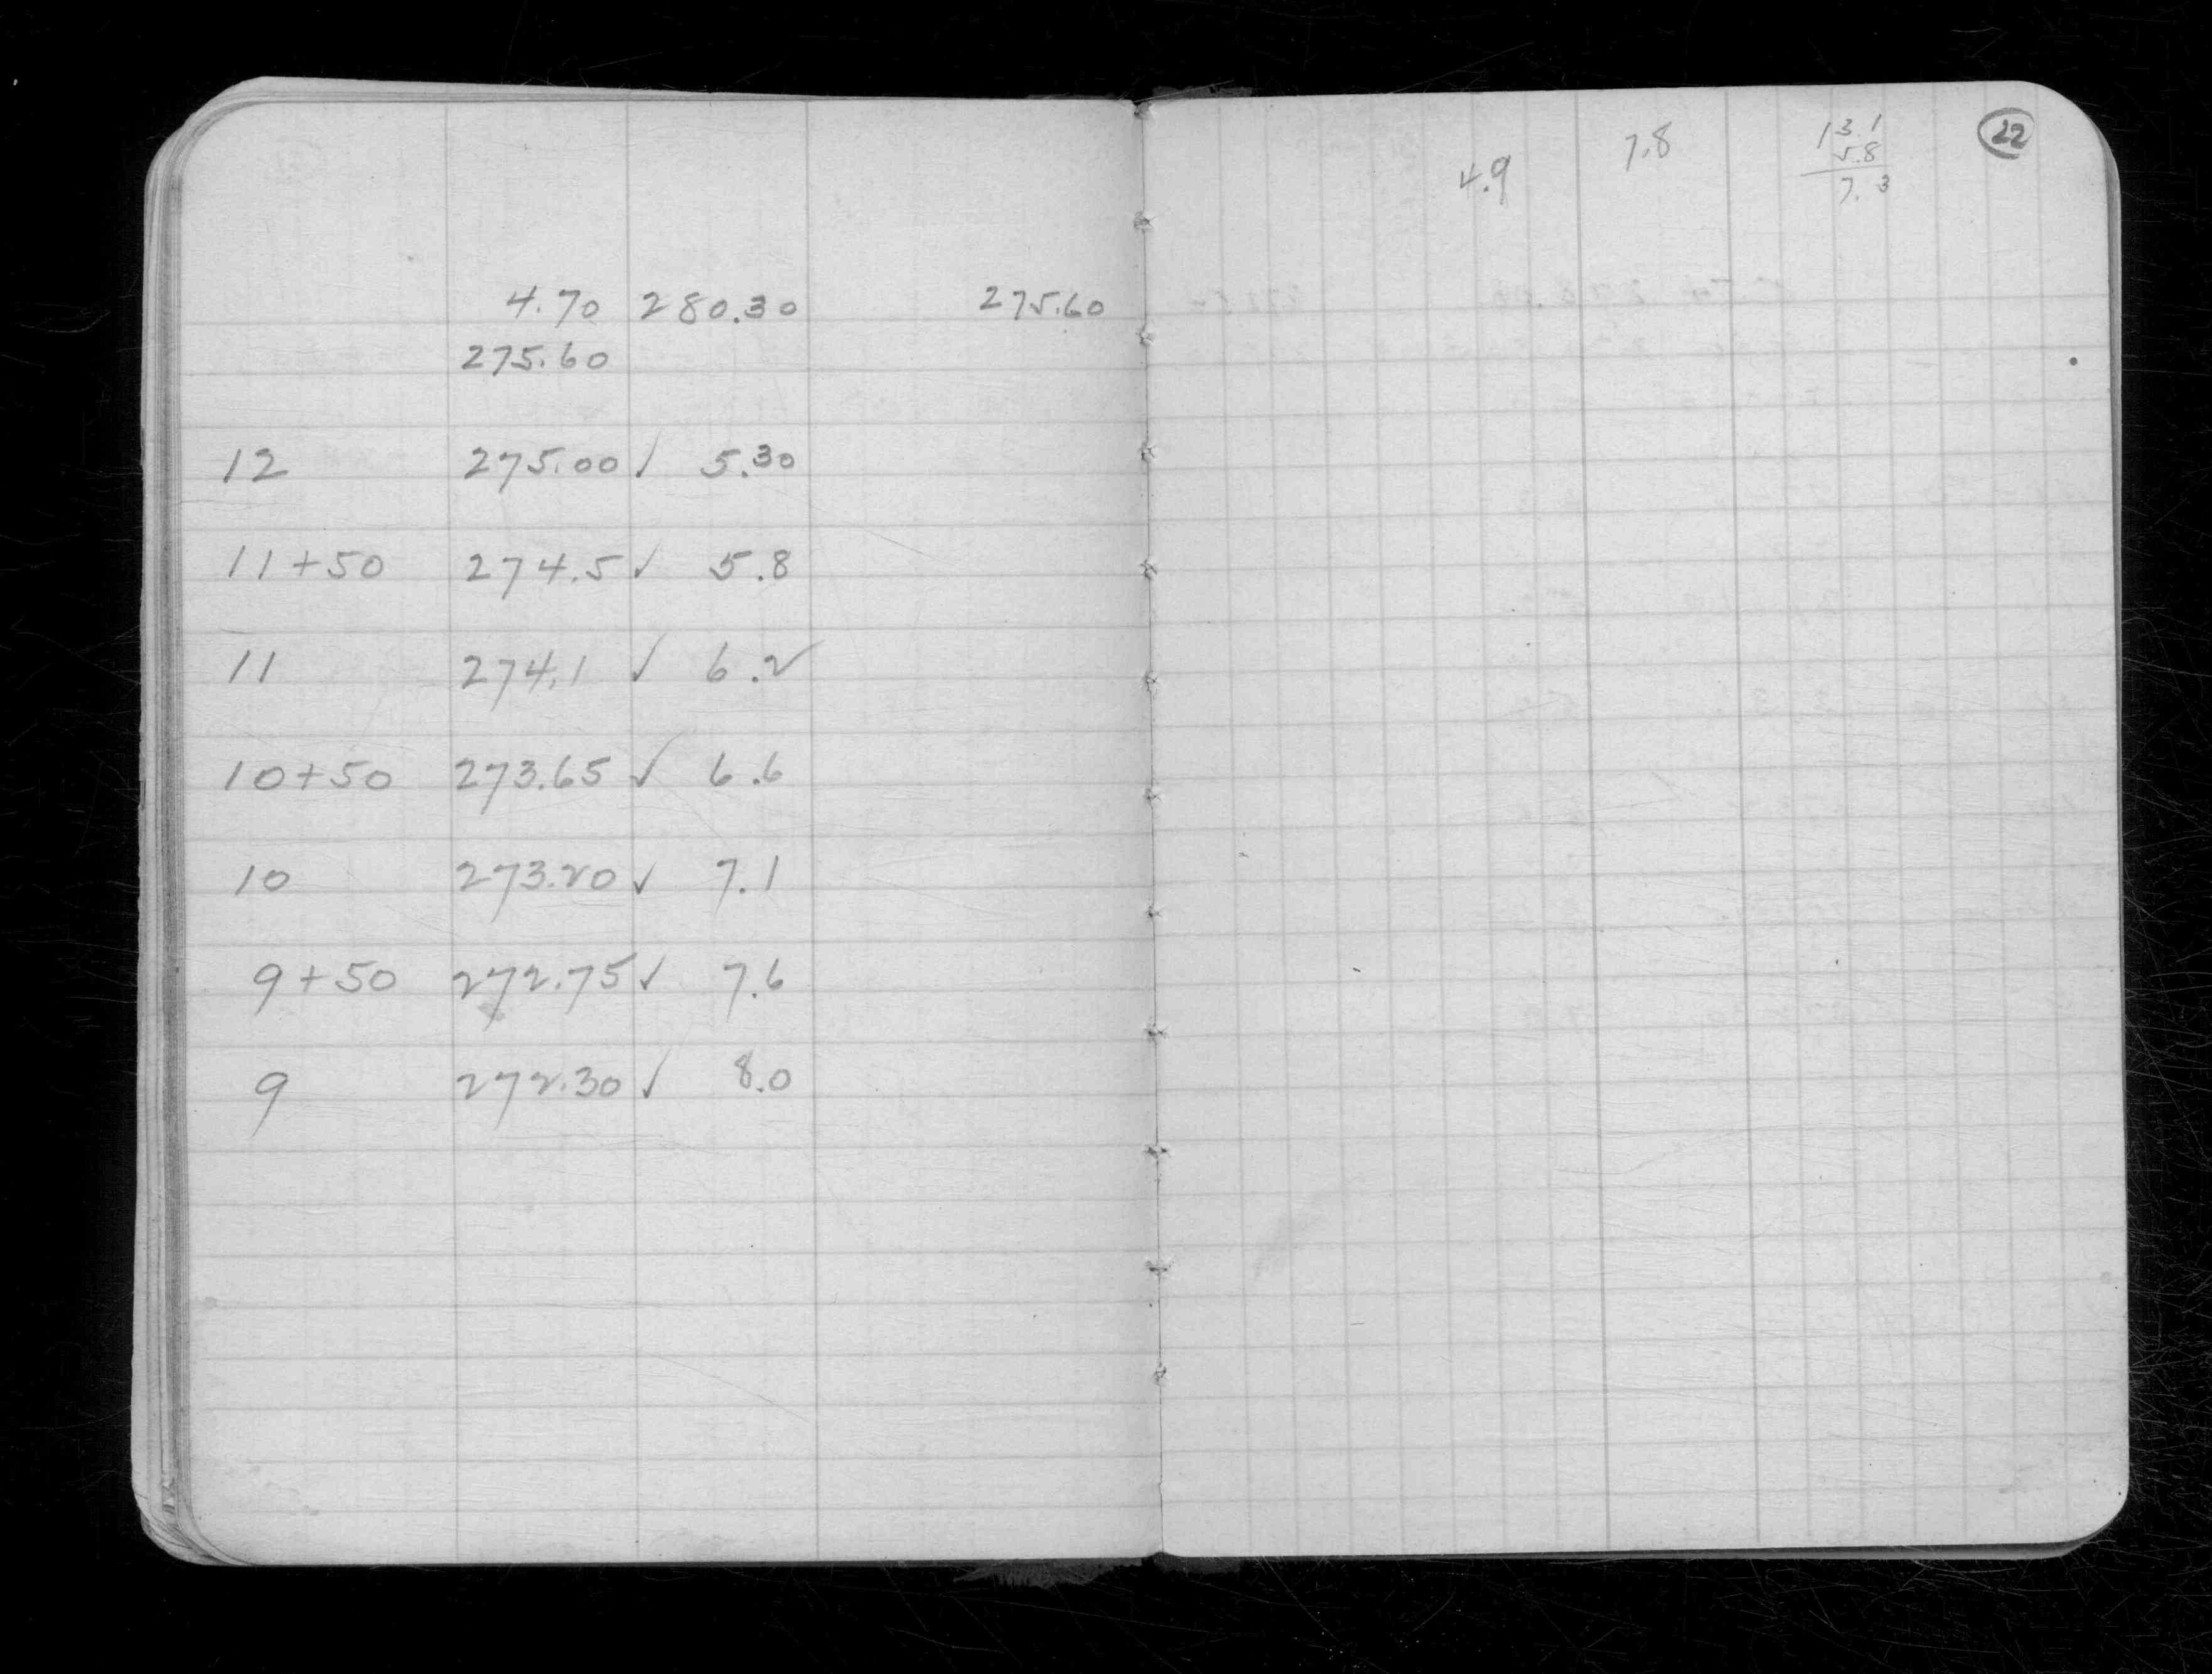 4.70 280.30 275.60
275.60
12 275.00 ✓ 5.30
11+50 274.5 ✓ 5.8
11 274.1 ✓ 6.2
10+50 273.65 ✓ 6.6
10 273.20 ✓ 7.1
9+50 272.75 ✓ 7.6
9 272.30 ✓ 8.0
22
13.1
5.8
7.3
7.8
4.9